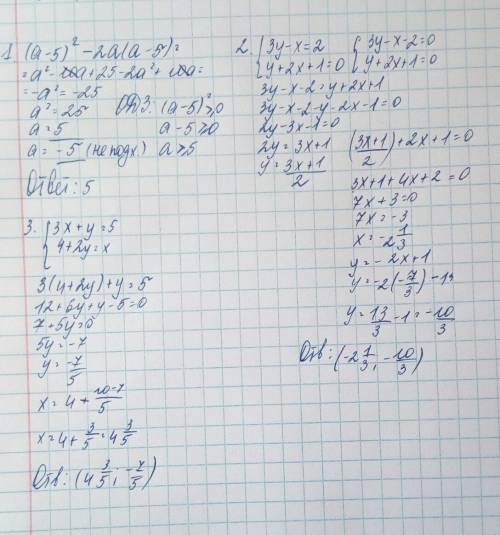 1. (a-5)² - 2a(a-5) =
= a² - 10a + 25 - 2a² + 10a =
= -a² = -25
a² = 25 ОДЗ: (a-5)² ≥ 0
a = 5 a-5 ≥ 0
a = -5 (не подх) a ≥ 5
Ответ: 5
2. { 3y-x=2 { 3y-x-2=0
{ y+2x+1=0 { y+2x+1=0
3y-x-2=y+2x+1
3y-x-2-y-2x-1=0
2y-3x-1=0
2y=3x+1
y = (3x+1)/2
((3x+1)/2) + 2x+1=0
3x+1+4x+2=0
7x+3=0
7x=-3
x=-2 1/3
y=-2x+1
y=-2(-7/3)-1
y = 13/3 - 1 = -10/3
Отв: (-2 1/3; -10/3)
3. { 3x+y=5
{ 4+2y=x
3(4+2y)+y=5
12+6y+y-5=0
7+5y=0
5y=-7
y=-7/5
x=4+ (10-7)/5
x=4+ 3/5 = 4 3/5
Отв: (4 3/5; -7/5)